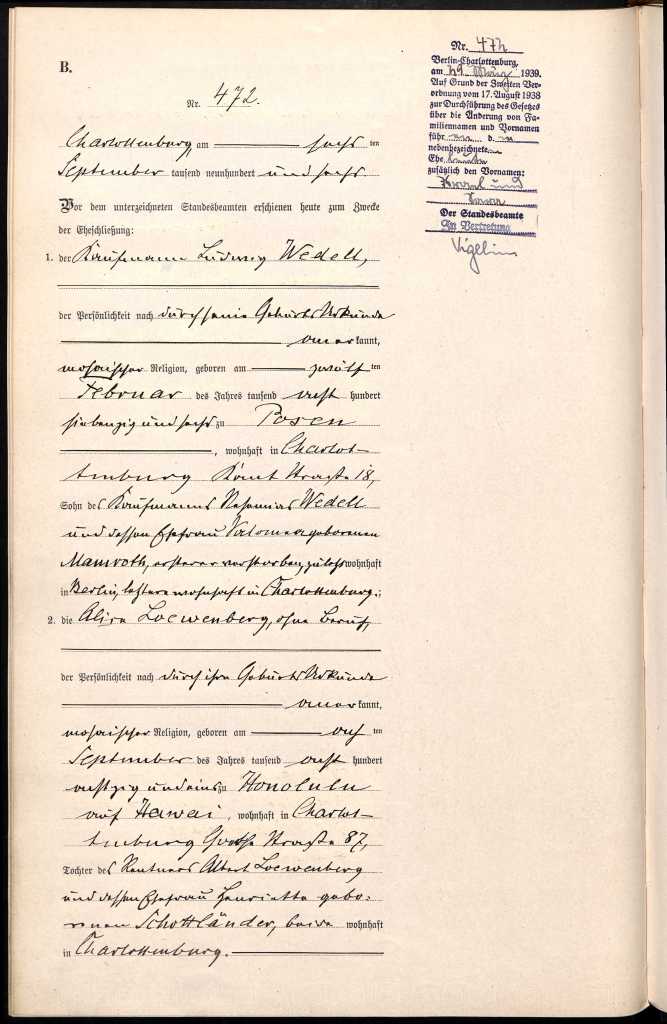 B.
Nr. 472.
Charlottenburg, am sechsten
September tausend neunhundert und sechs
Vor dem unterzeichneten Standesbeamten erschienen heute zum Zwecke
der Eheschließung:
1. der Kaufmann Ludwig Wedell,
der Persönlichkeit nach durch seine Geburts Urkunde
anerkannt,
mosaischer Religion, geboren am zwölften
Februar des Jahres tausend acht hundert
siebenzig und sechs zu Posen
, wohnhaft in Charlot-
tenburg Kant Straße 18,
Sohn des Kaufmanns Nehemias Wedell
und dessen Ehefrau geborenen
Mamroth, ersterer verstorben, zuletzt wohnhaft
in Berlin, letztere wohnhaft in Charlottenburg.;
2. die Alice Loewenberg, ohne Beruf,
der Persönlichkeit nach durch ihre Geburts Urkunde
anerkannt,
mosaischer Religion, geboren am ten
September des Jahres tausend acht hundert
achtzig und eins zu Honolulu
auf Hawai, wohnhaft in Charlot-
tenburg Goethe Straße 87,
Tochter des Rentners Albert Loewenberg
und dessen Ehefrau Henriette gebo-
renen Schottländer, beide wohnhaft
in Charlottenburg.
Nr. 472
Berlin-Charlottenburg,
am 29. März 1939.
Auf Grund der Zweiten Ver-
ordnung vom 17. August 1938
zur Durchführung des Gesetzes
über die Änderung von Fa-
miliennamen und Vornamen
führen d. in
nebenbezeichneten
Ehe
zusätzlich den Vornamen:
Israel und
Sara
Der Standesbeamte
In Vertretung